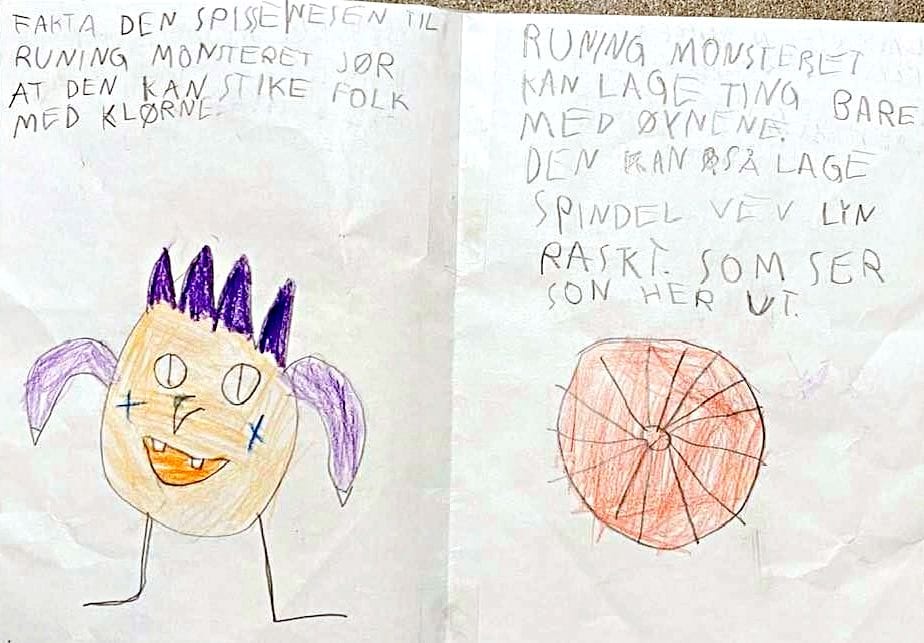 FAKTA DEN SPISSE NESEN TIL
RUNING MONSTERET JØR
AT DEN KAN STIKE FOLK
MED KLØRNE.
RUNING MONSTERET
KAN LAGE TING BARE
MED ØYNENE.
DEN KAN ØSÅ LAGE
SPINDEL VEV LYN
RASKT. SOM SER
SON HER UT.